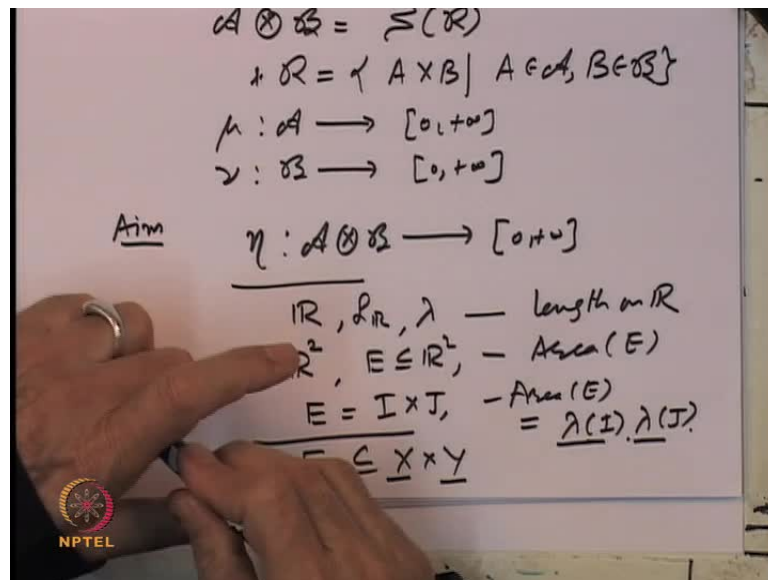 𝒜 ⊗ ℬ = S(ℛ)
ℛ = { A × B | A ∈ 𝒜, B ∈ ℬ}
μ : 𝒜 → [0, +∞]
ν : ℬ → [0, +∞]
Aim η : 𝒜 ⊗ ℬ → [0, +∞]
ℝ, ℒ_ℝ, λ — Length on ℝ
ℝ², E ⊆ ℝ², — Area(E)
E = I × J, — Area(E)
= λ(I). λ(J).
⊆ X × Y
NPTEL